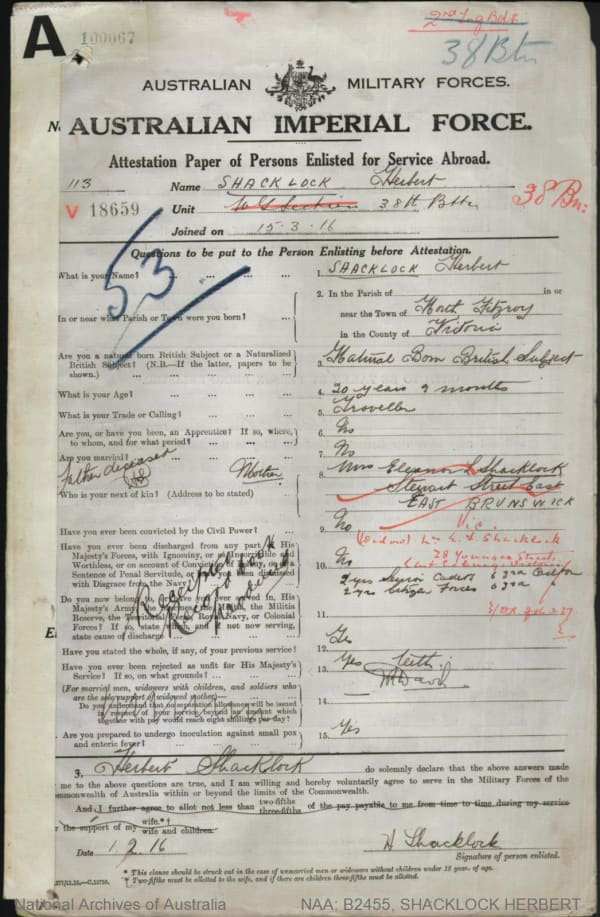 A
100067
2nd
38 Btn
AUSTRALIAN MILITARY FORCES.
AUSTRALIAN IMPERIAL FORCE.
Attestation Paper of Persons Enlisted for Service Abroad.
113 Name SHACKLOCK Herbert
V 18659 Unit 38th Battn 38 Bn:
Joined on 15.3.16
Questions to be put to the Person Enlisting before Attestation.
53
What is your Name? ... 1. SHACKLOCK Herbert
2. In the Parish of in or
In or near what Parish or Town were you born? near the Town of North Fitzroy
in the County of Victoria
Are you a natural born British Subject or a Naturalized
British Subject? (N.B.—If the latter, papers to be
shown.) 3. Natural Born British Subject
What is your Age? 4. 20 years 9 months
What is your Trade or Calling? 5. Traveller
Are you, or have you been, an Apprentice? If so, where,
to whom, and for what period? 6. No
Are you married? 7. No
Father deceased Mother 8. Mrs Eleanor L Shacklock
Who is your next of kin? (Address to be stated) Stewart Street East
EAST BRUNSWICK
Vic.
Have you ever been convicted by the Civil Power? 9. No
(Widow) Mrs Shacklock
28 Younger Street
Have you ever been discharged from any part of His
Majesty's Forces, with Ignominy, or as Incorrigible and
Worthless, or on account of Conviction of Felony, or of a
Sentence of Penal Servitude, or have you been dismissed
with Disgrace from the Navy? 10. No
2 yrs Senior Cadets
2 yrs Citizen Forces
Do you now belong to, or have you ever served in, His
Majesty's Army, the Marines, the Militia, the Militia
Reserve, the Territorial Reserve, Royal Navy, or Colonial
Forces? If so, state which, and if not now serving,
state cause of discharge 11.
Have you stated the whole, if any, of your previous service? 12. Yes
Have you ever been rejected as unfit for His Majesty's
Service? If so, on what grounds? 13. Yes Teeth
(For married men, widowers with children, and soldiers who
are the sole support of widowed mother)—
Do you understand that no separation allowance will be issued
in respect of your service beyond an amount which
together with pay would reach eight shillings per day? 14.
Are you prepared to undergo inoculation against small pox
and enteric fever? 15. Yes
I, Herbert Shacklock do solemnly declare that the above answers made
me to the above questions are true, and I am willing and hereby voluntarily agree to serve in the Military Forces of the
Commonwealth of Australia within or beyond the limits of the Commonwealth.
And I further agree to allot not less than two-fifths three-fifths of the pay payable to me from time to time during my service
the support of my wife.*† wife and children.
Date 1.2.16 H Shacklock
Signature of person enlisted.
* This clause should be struck out in the case of unmarried men or widowers without children under 18 year. of age.
† Two-fifths must be allotted to the wife, and if there are children three-fifths must be allotted.
National Archives of Australia NAA: B2455, SHACKLOCK HERBERT